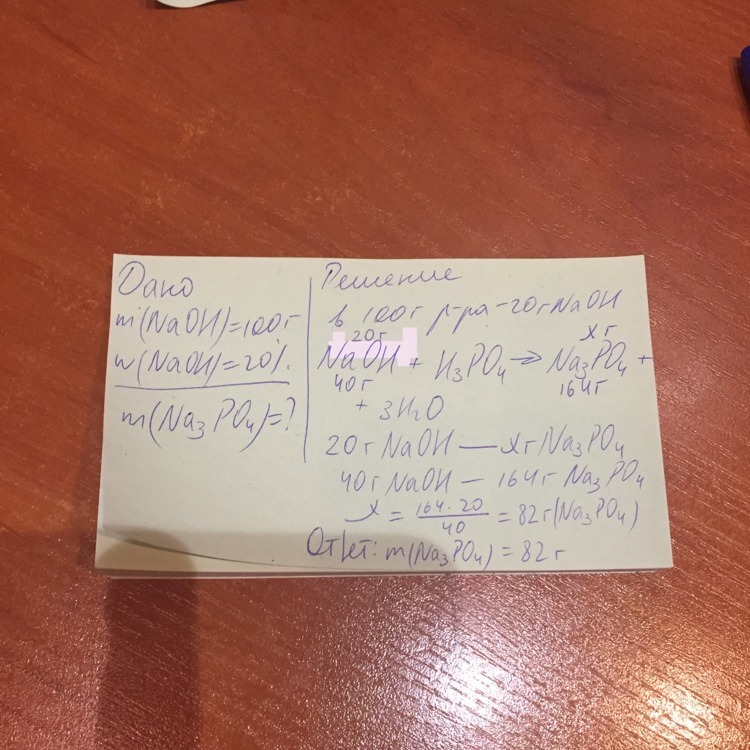 Дано
m(NaOH)=100г
w(NaOH)=20%.
m(Na₃PO₄)=?
Решение
в 100г р-ра - 20г NaOH
20г
xг
NaOH + H₃PO₄ → Na₃PO₄ +
40г
164г
+ 3H₂O
20г NaOH — xг Na₃PO₄
40г NaOH — 164г Na₃PO₄
x = 164·20/40 = 82г(Na₃PO₄)
Ответ: m(Na₃PO₄) = 82г